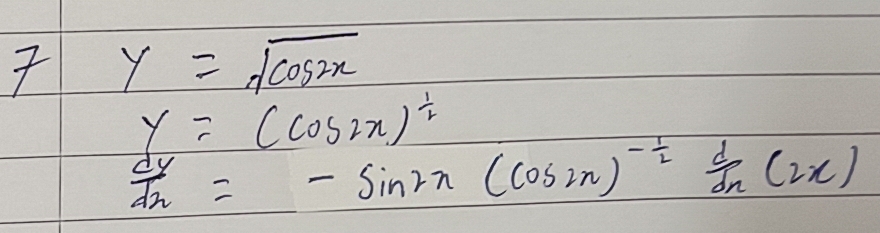 7 y = √cos2x
y = (cos2x)^½
dy/dx = - sin2x (cos2x)^-½ d/dx (2x)